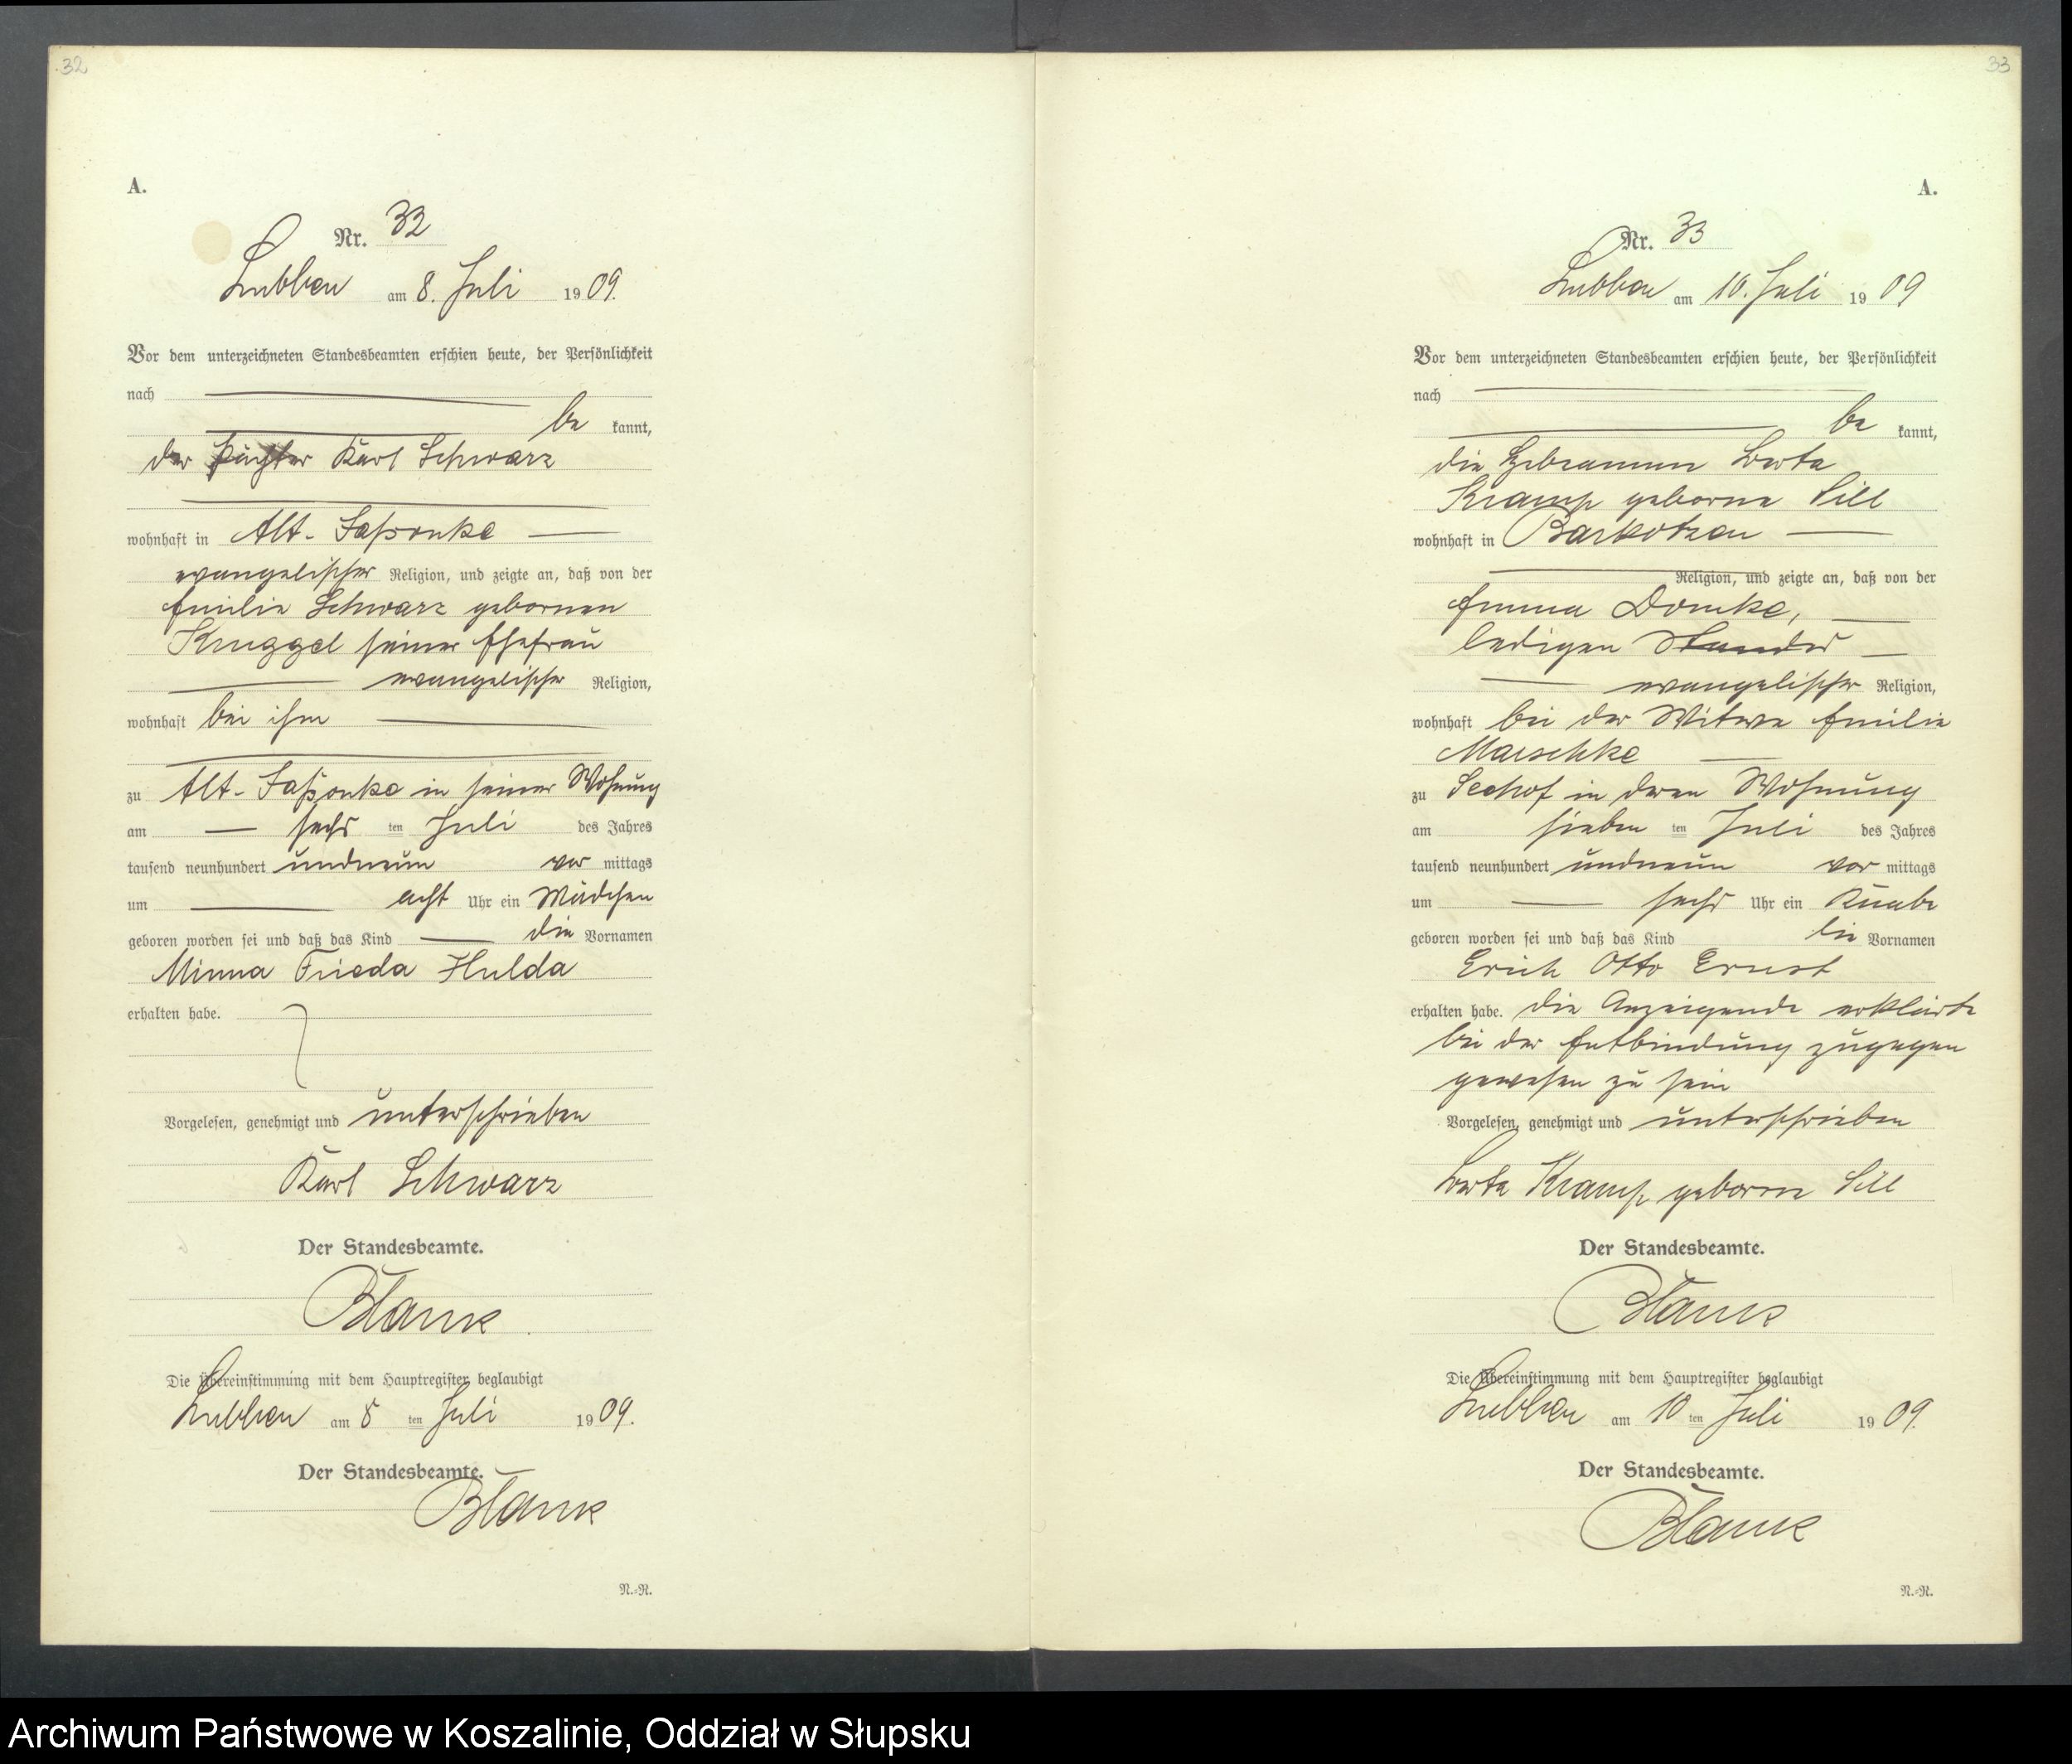 32
A.
Nr. 32
Lubben am 8. Juli 1909.
Vor dem unterzeichneten Standesbeamten erschien heute, der Persönlichkeit
nach
be kannt,
der Pächter Karl Schwarz
wohnhaft in Alt-Jaßonke
evangelischer Religion, und zeigte an, daß von der
Emilie Schwarz gebornen
Kruggel seiner Ehefrau
evangelischer Religion,
wohnhaft bei ihm
zu Alt-Jaßonke in seiner Wohnung
am sechs ten Juli des Jahres
tausend neunhundert undneun vor mittags
um acht Uhr ein Mädchen
geboren worden sei und daß das Kind die Vornamen
Minna Frieda Hulda
erhalten habe.
Vorgelesen, genehmigt und unterschrieben
Karl Schwarz
Der Standesbeamte.
Blank
Die Übereinstimmung mit dem Hauptregister beglaubigt
Lubben am 8 ten Juli 1909.
Der Standesbeamte.
Blank
N.-R.
33
A.
Nr. 33
Lubben am 10. Juli 1909
Vor dem unterzeichneten Standesbeamten erschien heute, der Persönlichkeit
nach
be kannt,
die Hebeamme Berta
Kramp geborne Sill
wohnhaft in Barkotzen
Religion, und zeigte an, daß von der
Emma Domke,
ledigen Standes
evangelischer Religion,
wohnhaft bei der Witwe Emilie
Maschke
zu Seehof in deren Wohnung
am sieben ten Juli des Jahres
tausend neunhundert undneun vor mittags
um sechs Uhr ein Knabe
geboren worden sei und daß das Kind die Vornamen
Erich Otto Ernst
erhalten habe. Die Anzeigende erklärte
bei der Entbindung zugegen
gewesen zu sein
Vorgelesen, genehmigt und unterschrieben
Berta Kramp geborne Sill
Der Standesbeamte.
Blank
Die Übereinstimmung mit dem Hauptregister beglaubigt
Lubben am 10 ten Juli 1909.
Der Standesbeamte.
Blank
N.-R.
Archiwum Państwowe w Koszalinie, Oddział w Słupsku